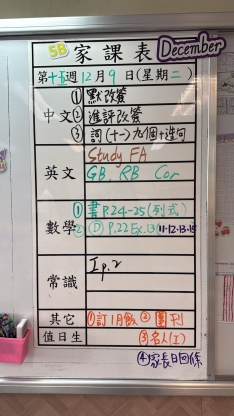 5B 家課表 December
第十五週12月9日(星期二)
中文 ① 默改簽
② 進評改簽
③ 詞(十一)九個+造句
英文 Study FA
GB RB Cor
數學 ① 書P.24-25(列式)
② (D) P.22 Ex.13
常識 I p.2
其它 ①訂1月飯 ② 刊
值日生 ③名人(I)
④家長日回條